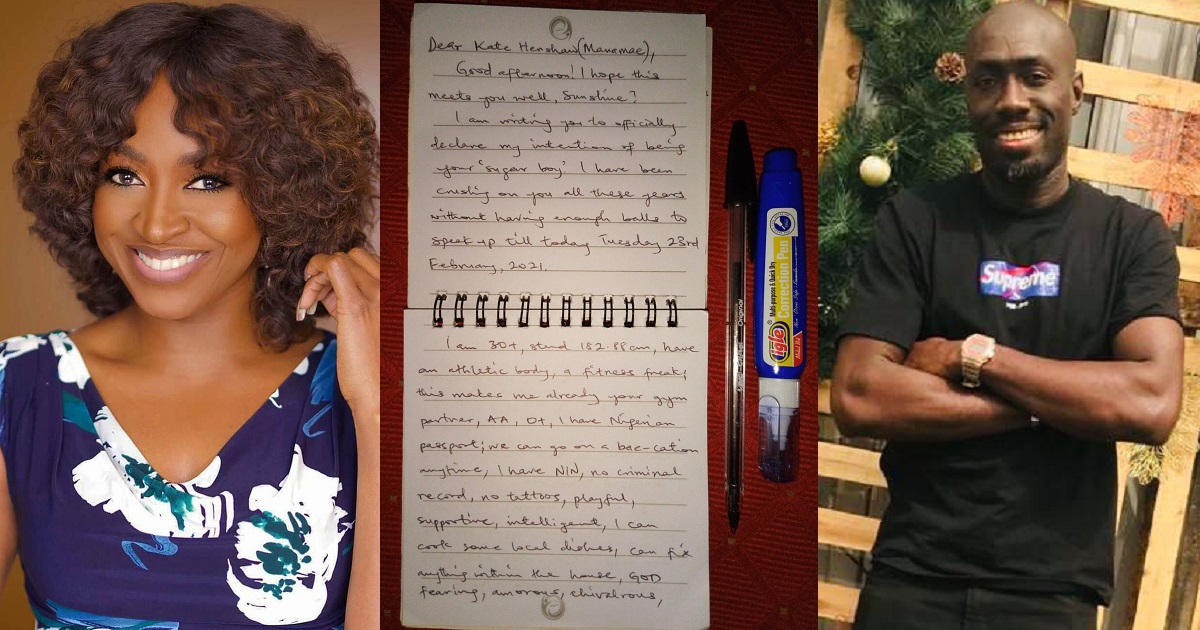 Dear Kate Henshaw (Mamamae),
Good afternoon! I hope this
meets you well, Sunshine?
I am writing you to officially
declare my intention of being
your 'sugar boy'. I have been
crushing on you all these years
without having enough balls to
speak up till today Tuesday 23rd
February, 2021.
I am 30+, stand 182.88cm, have
an athletic body, a fitness freak;
this makes me already your gym
partner, AA, O+, I have Nigerian
passport; we can go on a bae-cation
anytime, I have NIN, no criminal
record, no tattoos, playful,
supportive, intelligent, I can
cook some local dishes, can fix
anything within the house, GOD
fearing, amorous, chivalrous,
Original
igle
Multi-purpose & Quick Dry
Correction Pen
Supreme